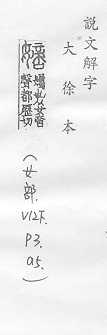 說文解字
大徐本
孎也从女啻
聲都歷切
(女部. V12下. P3. a5.)